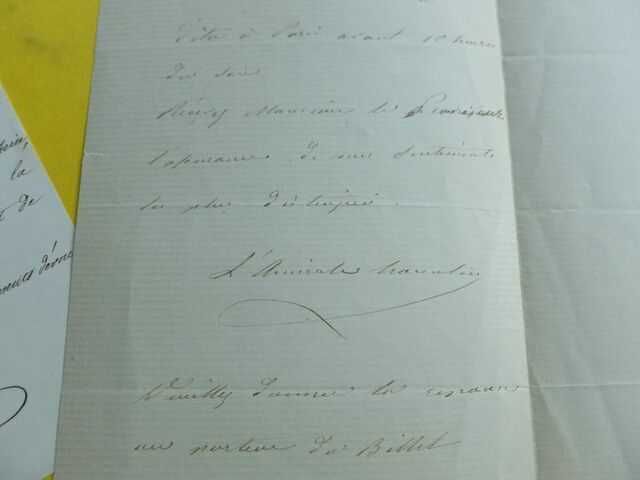 d'être à Paris avant 10 heures
du soir
Recevez Monsieur le Proviseur
l'assurance de mes sentiments
les plus distingués.
L'Amirale Hamelin
Veuillez donner la réponse
au porteur du Billet
la
de